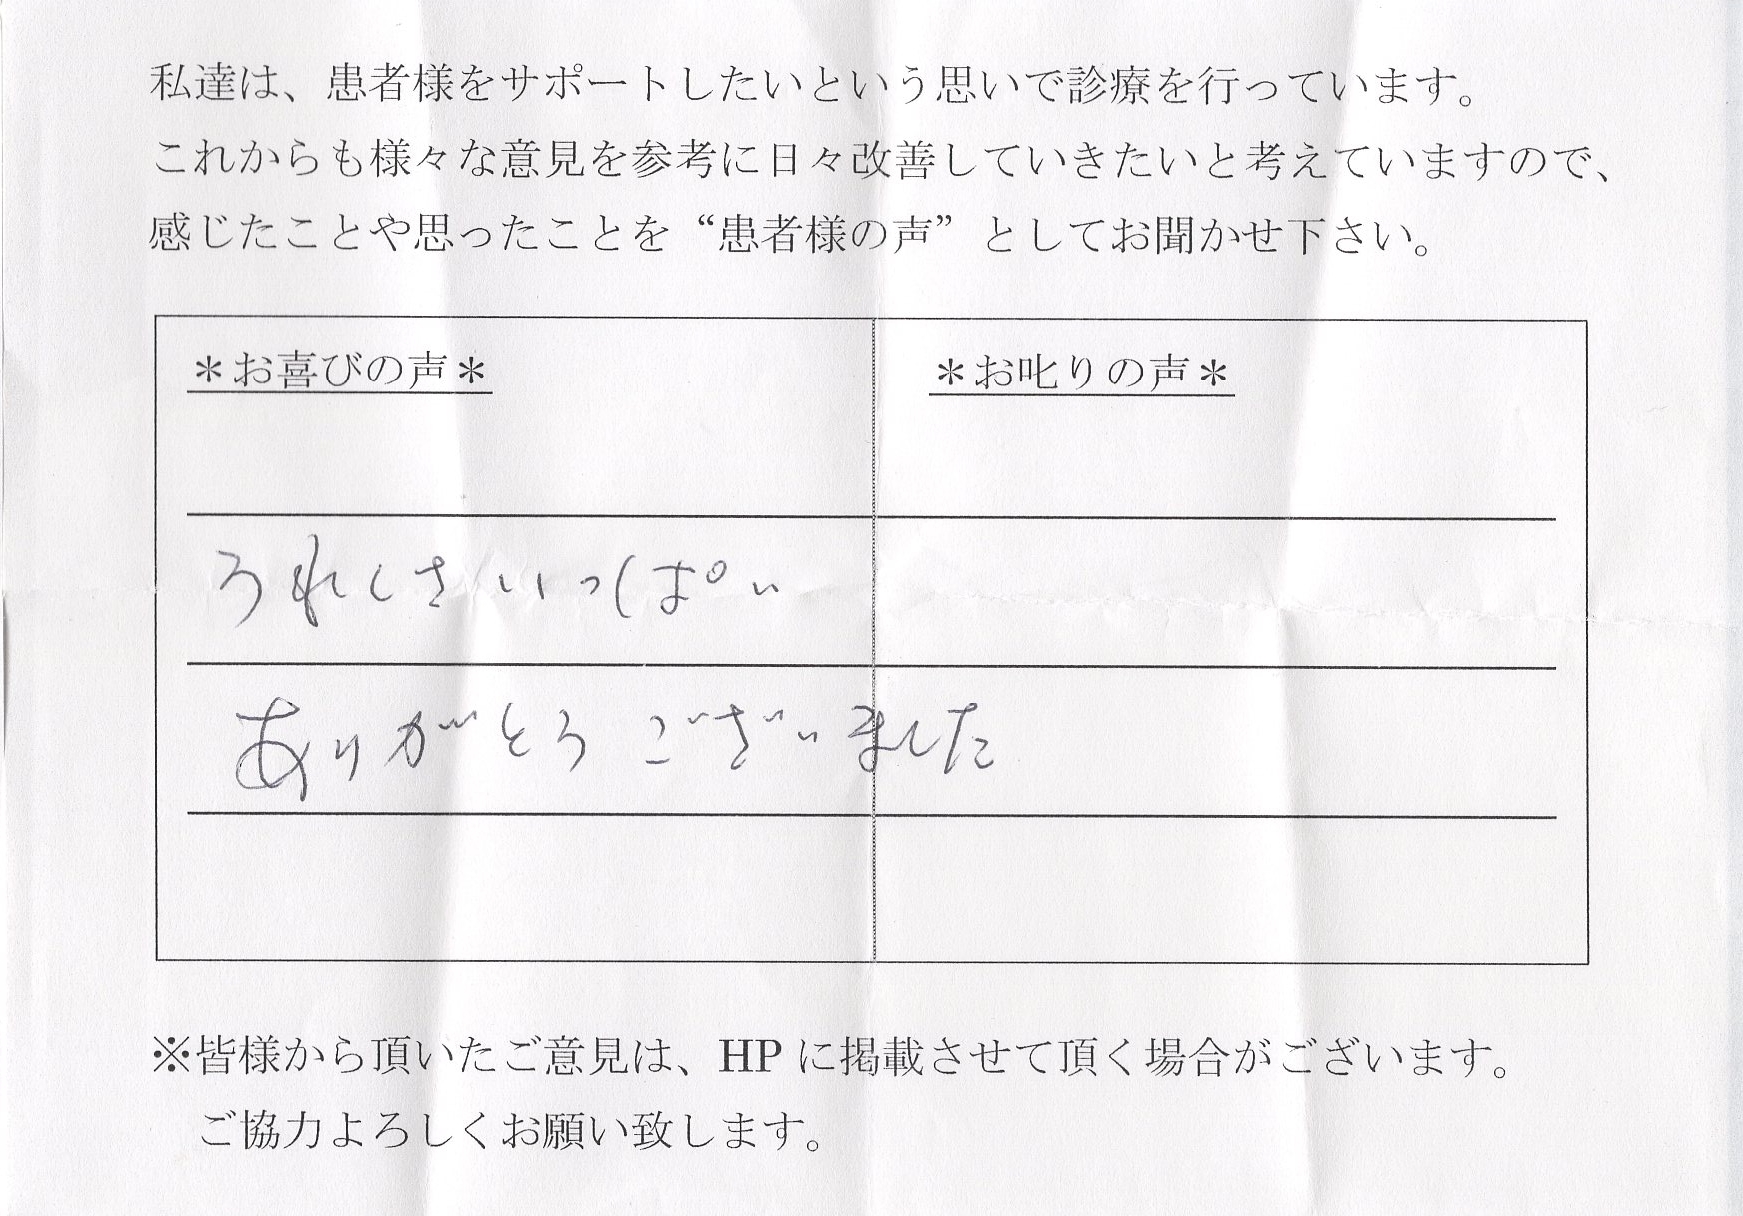 私達は、患者様をサポートしたいという思いで診療を行っています。
これからも様々な意見を参考に日々改善していきたいと考えていますので、
感じたことや思ったことを“患者様の声”としてお聞かせ下さい。
＊お喜びの声＊
＊お叱りの声＊
うれしさいっぱい
ありがとうございました
※皆様から頂いたご意見は、HPに掲載させて頂く場合がございます。
ご協力よろしくお願い致します。